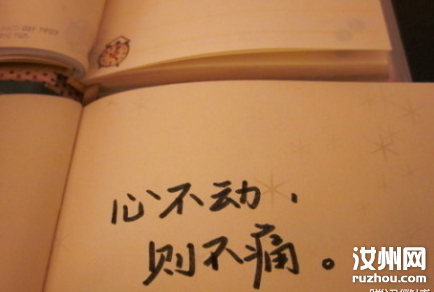 心不动，
则不痛。
汝州网
ruzhou.com